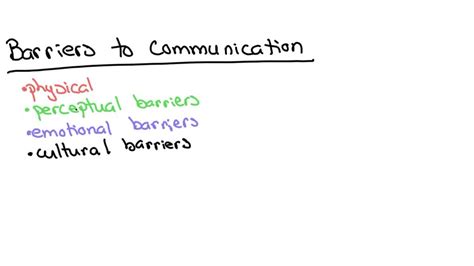 Barriers to Communication
•physical
•perceptual barriers
•emotional barriers
•cultural barriers